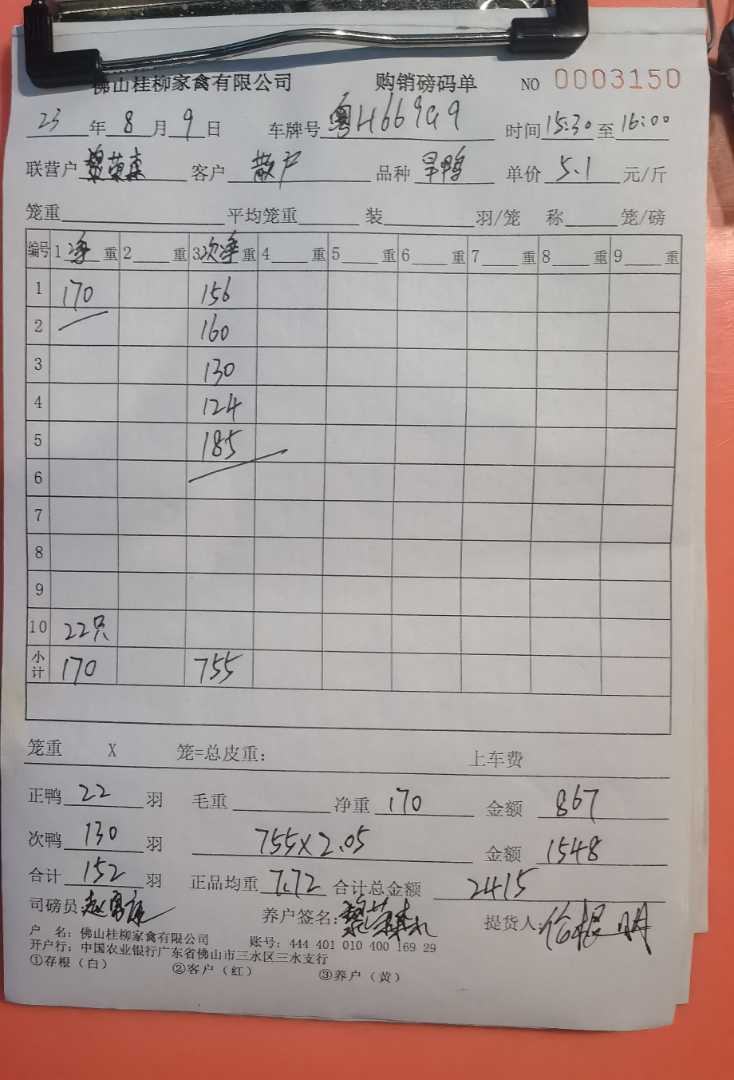 佛山桂柳家禽有限公司 购销磅码单 NO 0003150
23 年 8 月 9 日 车牌号 粤H669a9 时间 15:30 至 16:00
联营户 黎荣森 客户 散户 品种 旱鸭 单价 5.1 元/斤
笼重 平均笼重 装 羽/笼 称 笼/磅
编号 1 净 重 2 重 3 次净 重 4 重 5 重 6 重 7 重 8 重 9 重
1 170 156
2 160
3 130
4 124
5 185
6
7
8
9
10 22只
小计 170 755
笼重 X 笼=总皮重: 上车费
正鸭 22 羽 毛重 净重 170 金额 867
次鸭 130 羽 755X2.05 金额 1548
合计 152 羽 正品均重 7.72 合计总金额 2415
司磅员 养户签名: 黎荣森 提货人
户 名: 佛山桂柳家禽有限公司 账号: 444 401 010 400 169 29
开户行: 中国农业银行广东省佛山市三水区三水支行
①存根(白) ②客户(红) ③养户(黄)